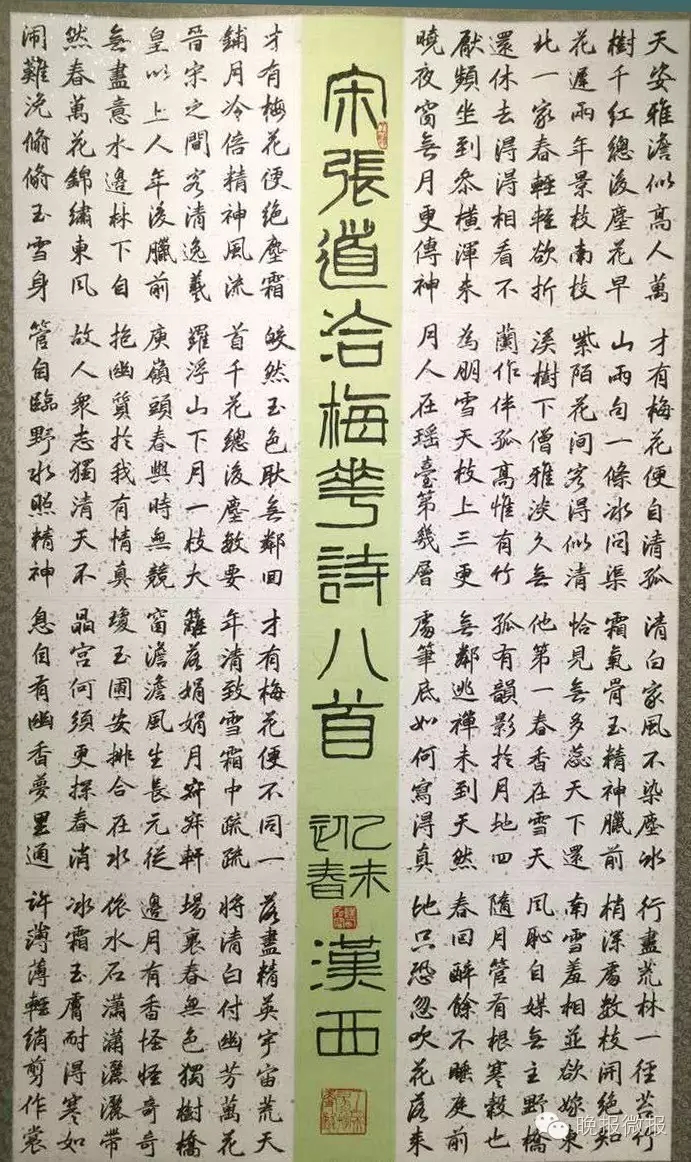 天姿雅澹似高人萬
樹千紅總後塵花早
花遲兩年景枝南枝
北一家春輕輕欲折
還休去得得相看不
厭頻坐到參橫渾未
曉夜窗無月更傳神
才有梅花便自清孤
山兩句一條冰問渠
紫陌花間客得似清
溪樹下僧雅淡久無
蘭作伴孤高惟有竹
為朋雪天枝上三更
月人在瑤臺第幾層
清白家風不染塵冰
霜氣骨玉精神臘前
恰見無多蕊天下還
他第一春香在雪天
孤有韻影於月地四
無鄰逃禪未到天然
處筆底如何寫得真
行盡荒林一徑苔竹
梢深處數枝開絕知
南雪羞相並欲嫁東
風恥自媒無主野橋
隨月管有根寒穀也
春回醉餘不睡庭前
地只恐忽吹花落來
宋張道洽梅華詩八首
乙未
迎春
漢西
才有梅花便絕塵霜
鋪月冷倍精神風流
晉宋之間客清逸羲
皇以上人年後臘前
無盡意水邊林下自
然春萬花錦繡東風
鬧難浼翛翛玉雪身
皎然玉色耿無鄰回
首千花總後塵數要
羅浮山下月一枝大
庾嶺頭春與時無競
抱幽質於我有情真
故人眾志獨清天不
管自臨野水照精神
才有梅花便不同一
年清致雪霜中疏疏
籬落娟娟月寂寂軒
窗澹澹風生長元從
瓊玉圃安排合在水
晶宮何須更探春消
息自有幽香夢里通
落盡精英宇宙荒天
將清白付幽芳萬花
場裏春無色獨樹橋
邊月有香怪怪奇奇
依水石瀟瀟灑灑帶
冰霜玉膚耐得寒如
許薄薄輕綃剪作裳
晚报微报